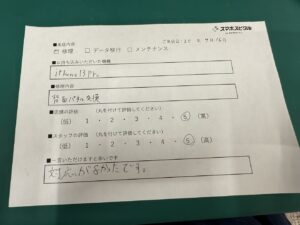 スマホスピタル
■来店内容
□ 修理 □ データ移行 □ メンテナンス
■お持ち込みいただいた機種
iPhone 13 Pr.
■修理内容
背面パネル交換
■店舗の評価 (丸を付けて評価してください)
(低) 1 ・ 2 ・ 3 ・ 4 ・ 5 (高)
■スタッフの評価 (丸を付けて評価してください)
(低) 1 ・ 2 ・ 3 ・ 4 ・ 5 (高)
■一言いただけますと幸いです
対応がよかったです。